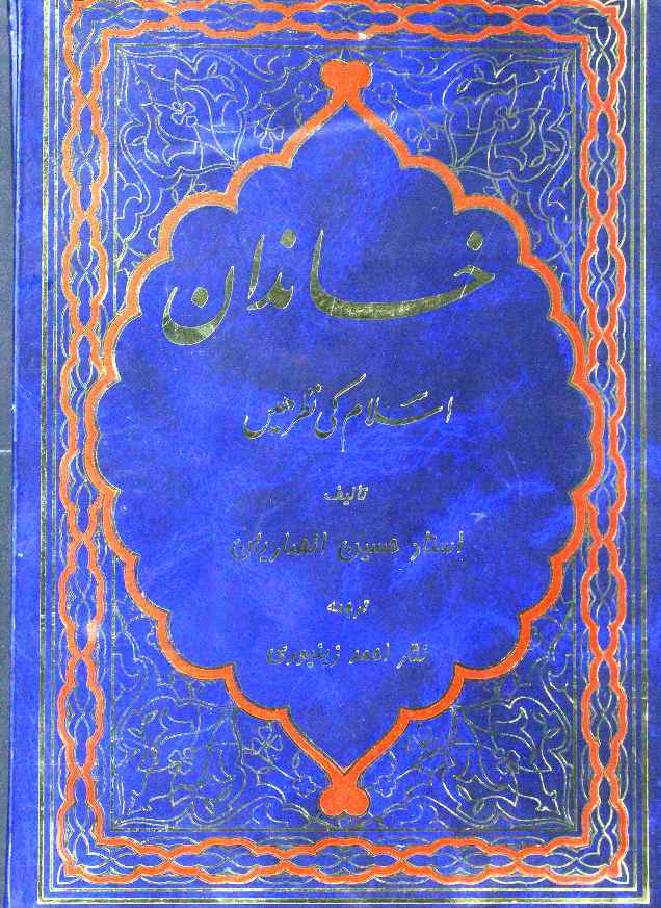 خاندان
اسلام کی نظر میں
تالیف
استاد حسین انصاریان
ترجمه
نثار احمد زینپوری